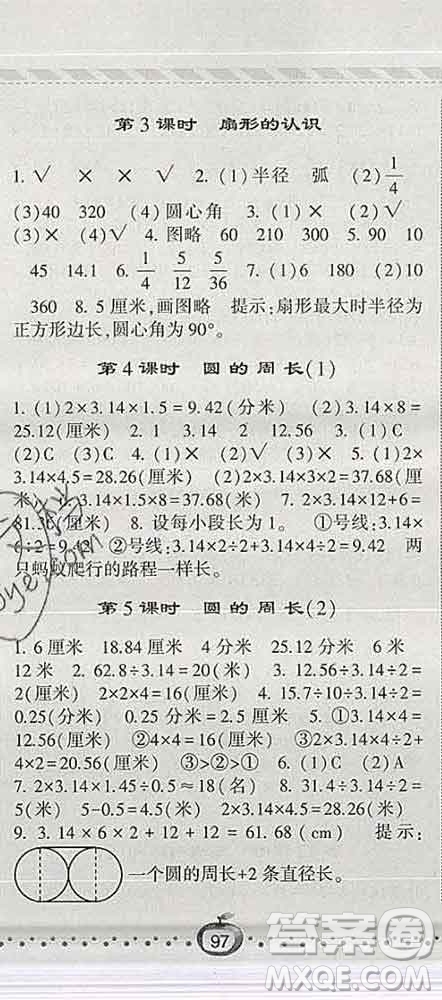 第3课时 扇形的认识
1. √ × × √ 2. (1)半径 弧 (2)1/4
(3)40 320 (4)圆心角 3. (1)× (2)√
(3)× (4)√ 4. 图略 60 210 300 5. 90 10
45 14.1 6. 1/4 5/12 5/36 7. (1)6 180 (2)10
360 8. 5厘米,画图略 提示:扇形最大时半径为
正方形边长,圆心角为90°。
第4课时 圆的周长(1)
1. (1)2×3.14×1.5=9.42(分米) (2)3.14×8=
25.12(厘米) 2. 1 3.14 2 12.56 3. (1)C
(2)C (3)C 4. (1)× (2)√ (3)× 5. (1)2×
3.14×4.5=28.26(厘米) (2)3.14×3×2=37.68(厘
米) 6. 2×3.14×1.5×4=37.68(米) 7. 2×3.14×12+6=
81.36(厘米) 8. 设每小段长为1。 ①号线:3.14×
6÷2=9.42 ②号线:3.14×2÷2+3.14×4÷2=9.42 两
只蚂蚁爬行的路程一样长。
第5课时 圆的周长(2)
1. 6厘米 18.84厘米 4分米 25.12分米 6米
12米 2. 62.8÷3.14=20(米) 3. 12.56÷3.14÷2=
2(厘米) 2×2×4=16(厘米) 4. 15.7÷10÷3.14÷2=
0.25(分米) 0.25分米=2.5厘米 5. ①3.14×4=
12.56(厘米) ②4×4=16(厘米) ③3.14×4÷2×2+
4×2=20.56(厘米) ③>②>① 6. (1)C (2)A
7. 2×3.14×1.45÷0.5≈18(名) 8. 31.4÷3.14÷2=
5(米) 5-0.5=4.5(米) 2×3.14×4.5=28.26(米)
9. 3.14×6×2+12+12=61.68(cm) 提示:
一个圆的周长+2条直径长。
97
答案圈
MXQE.COM